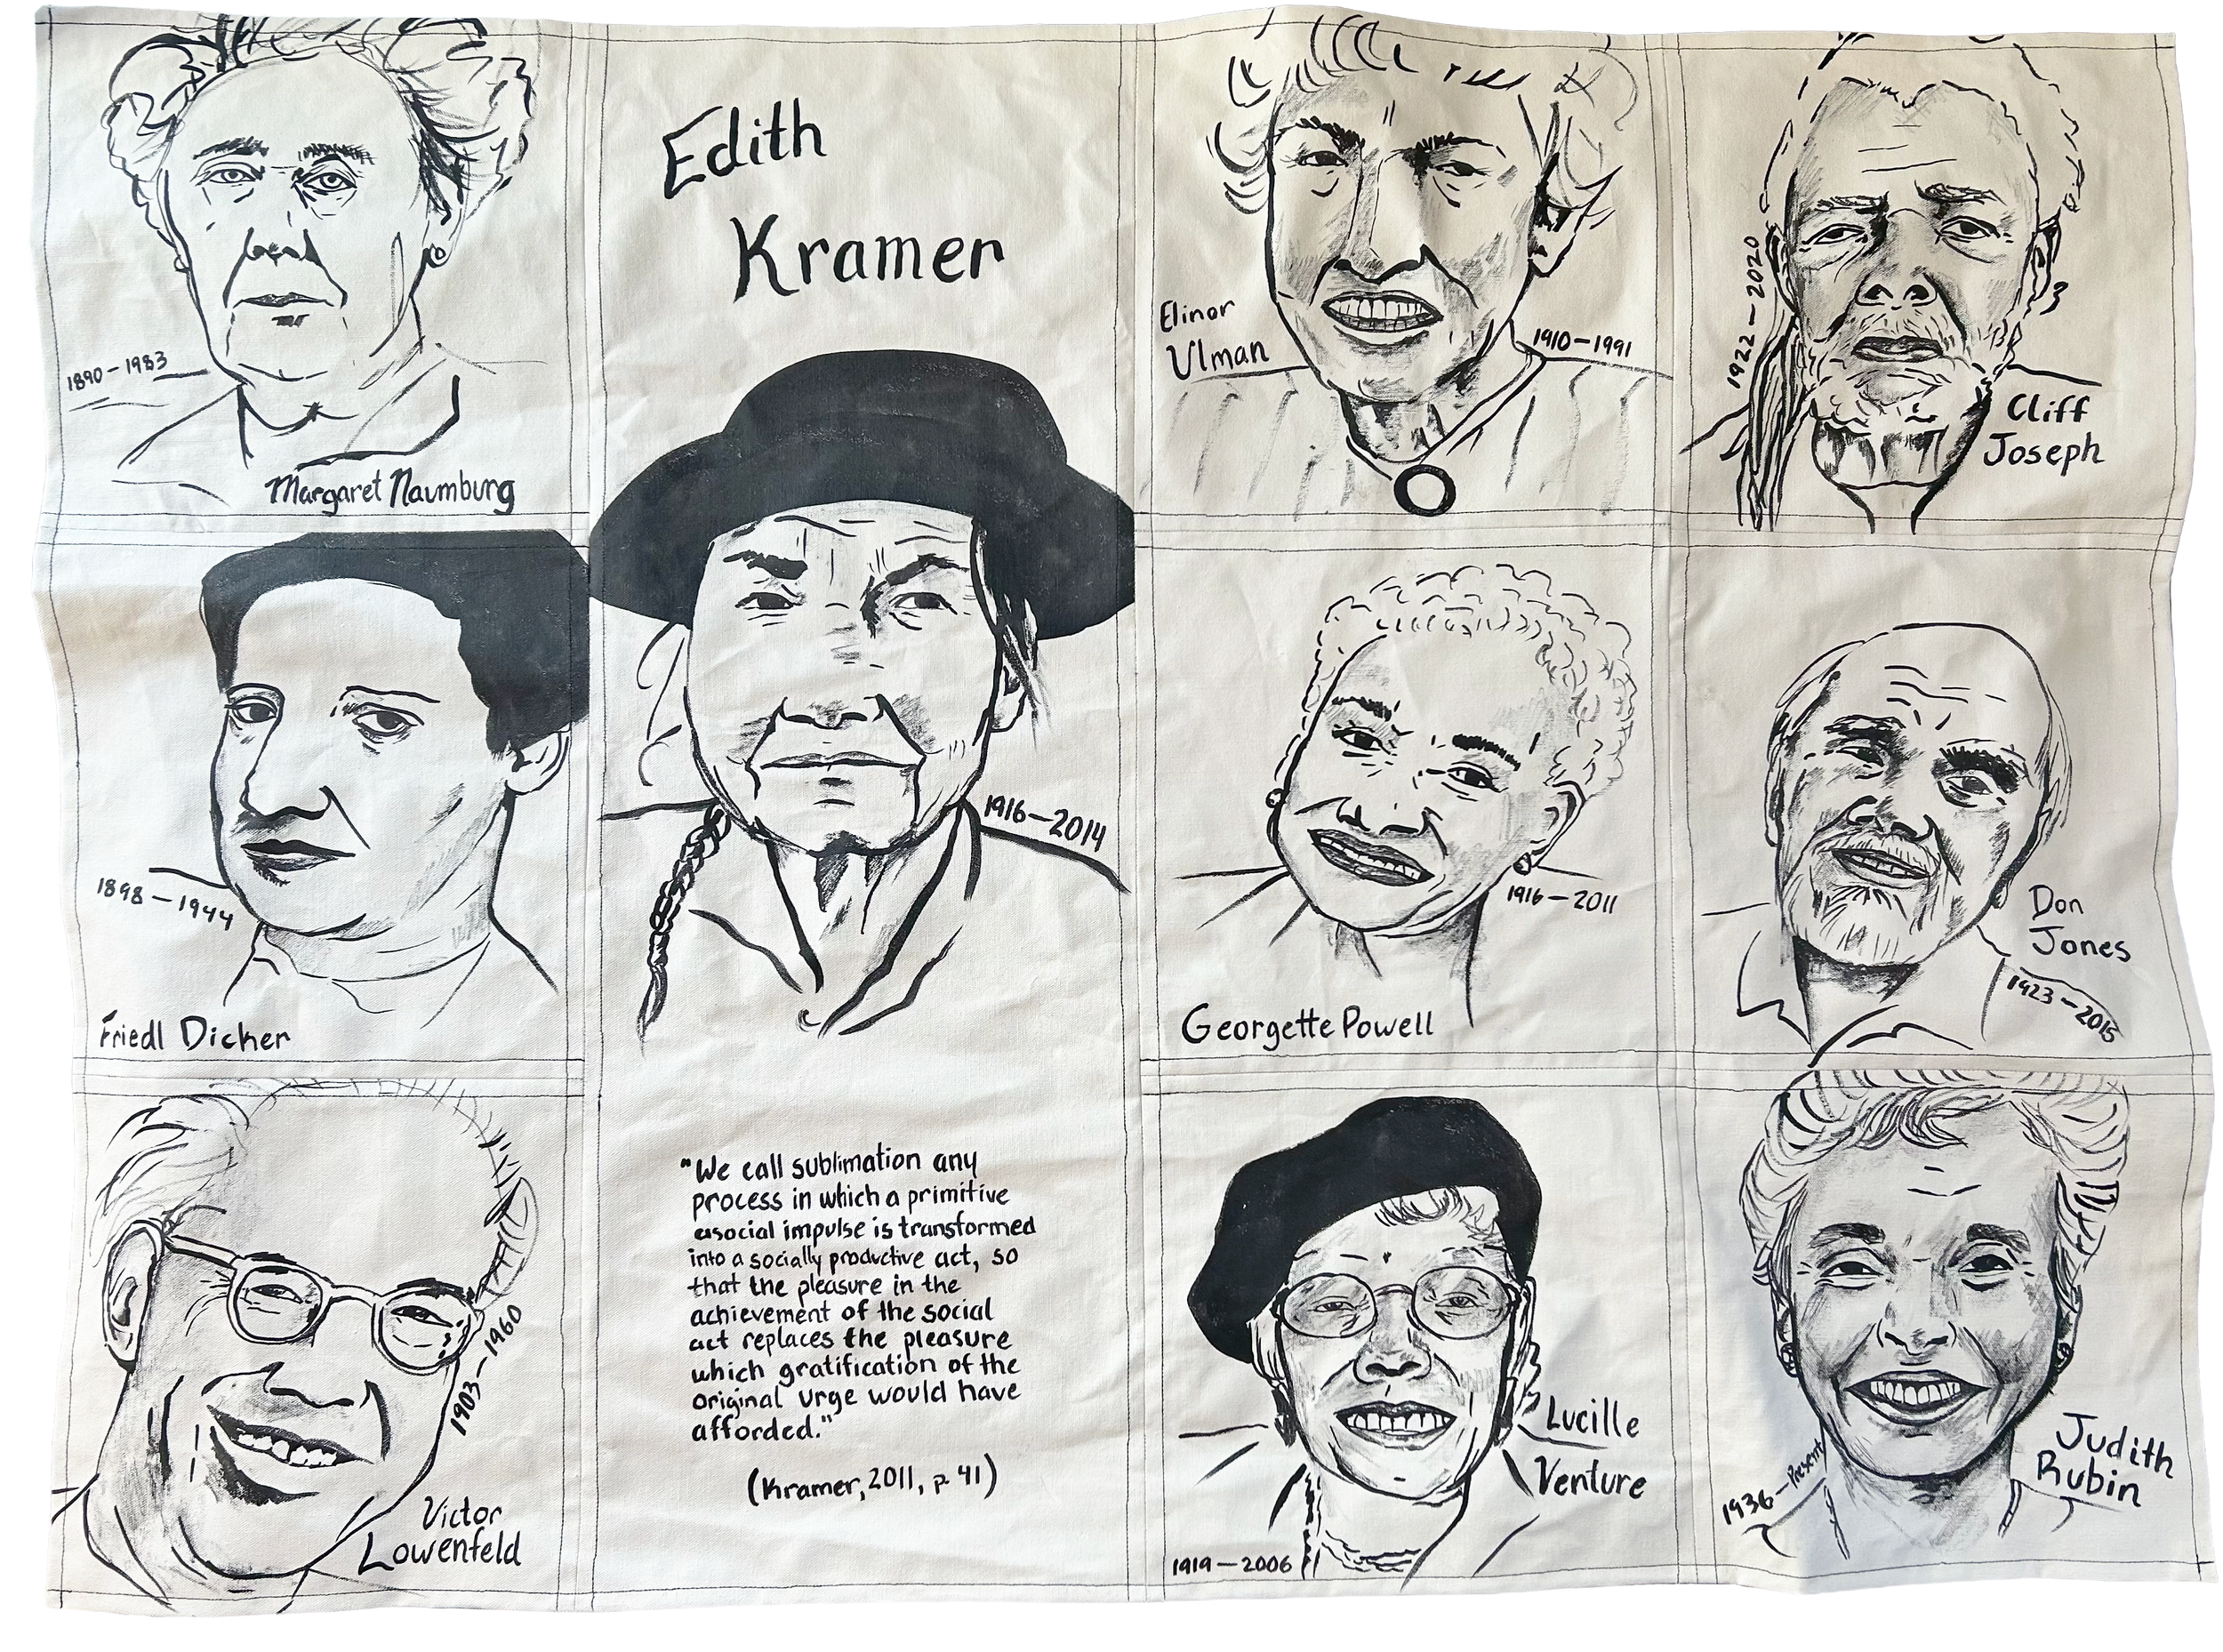 1890-1983
Margaret Naumburg
Edith
Kramer
1916-2014
"We call sublimation any
process in which a primitive
asocial impulse is transformed
into a socially productive act, so
that the pleasure in the
achievement of the social
act replaces the pleasure
which gratification of the
original urge would have
afforded."
(Kramer, 2011, p. 41)
Elinor
Ulman
1910-1991
1922-2020
Cliff
Joseph
1898-1944
Friedl Dicker
1916-2011
Georgette Powell
Don
Jones
1923-2015
1903-1960
Victor
Lowenfeld
Lucille
Venture
1919-2006
1936-Present
Judith
Rubin